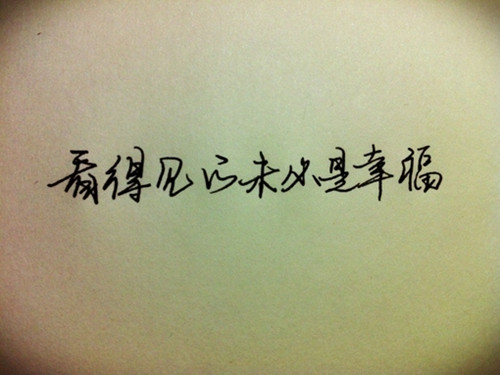 看得见的未必是幸福